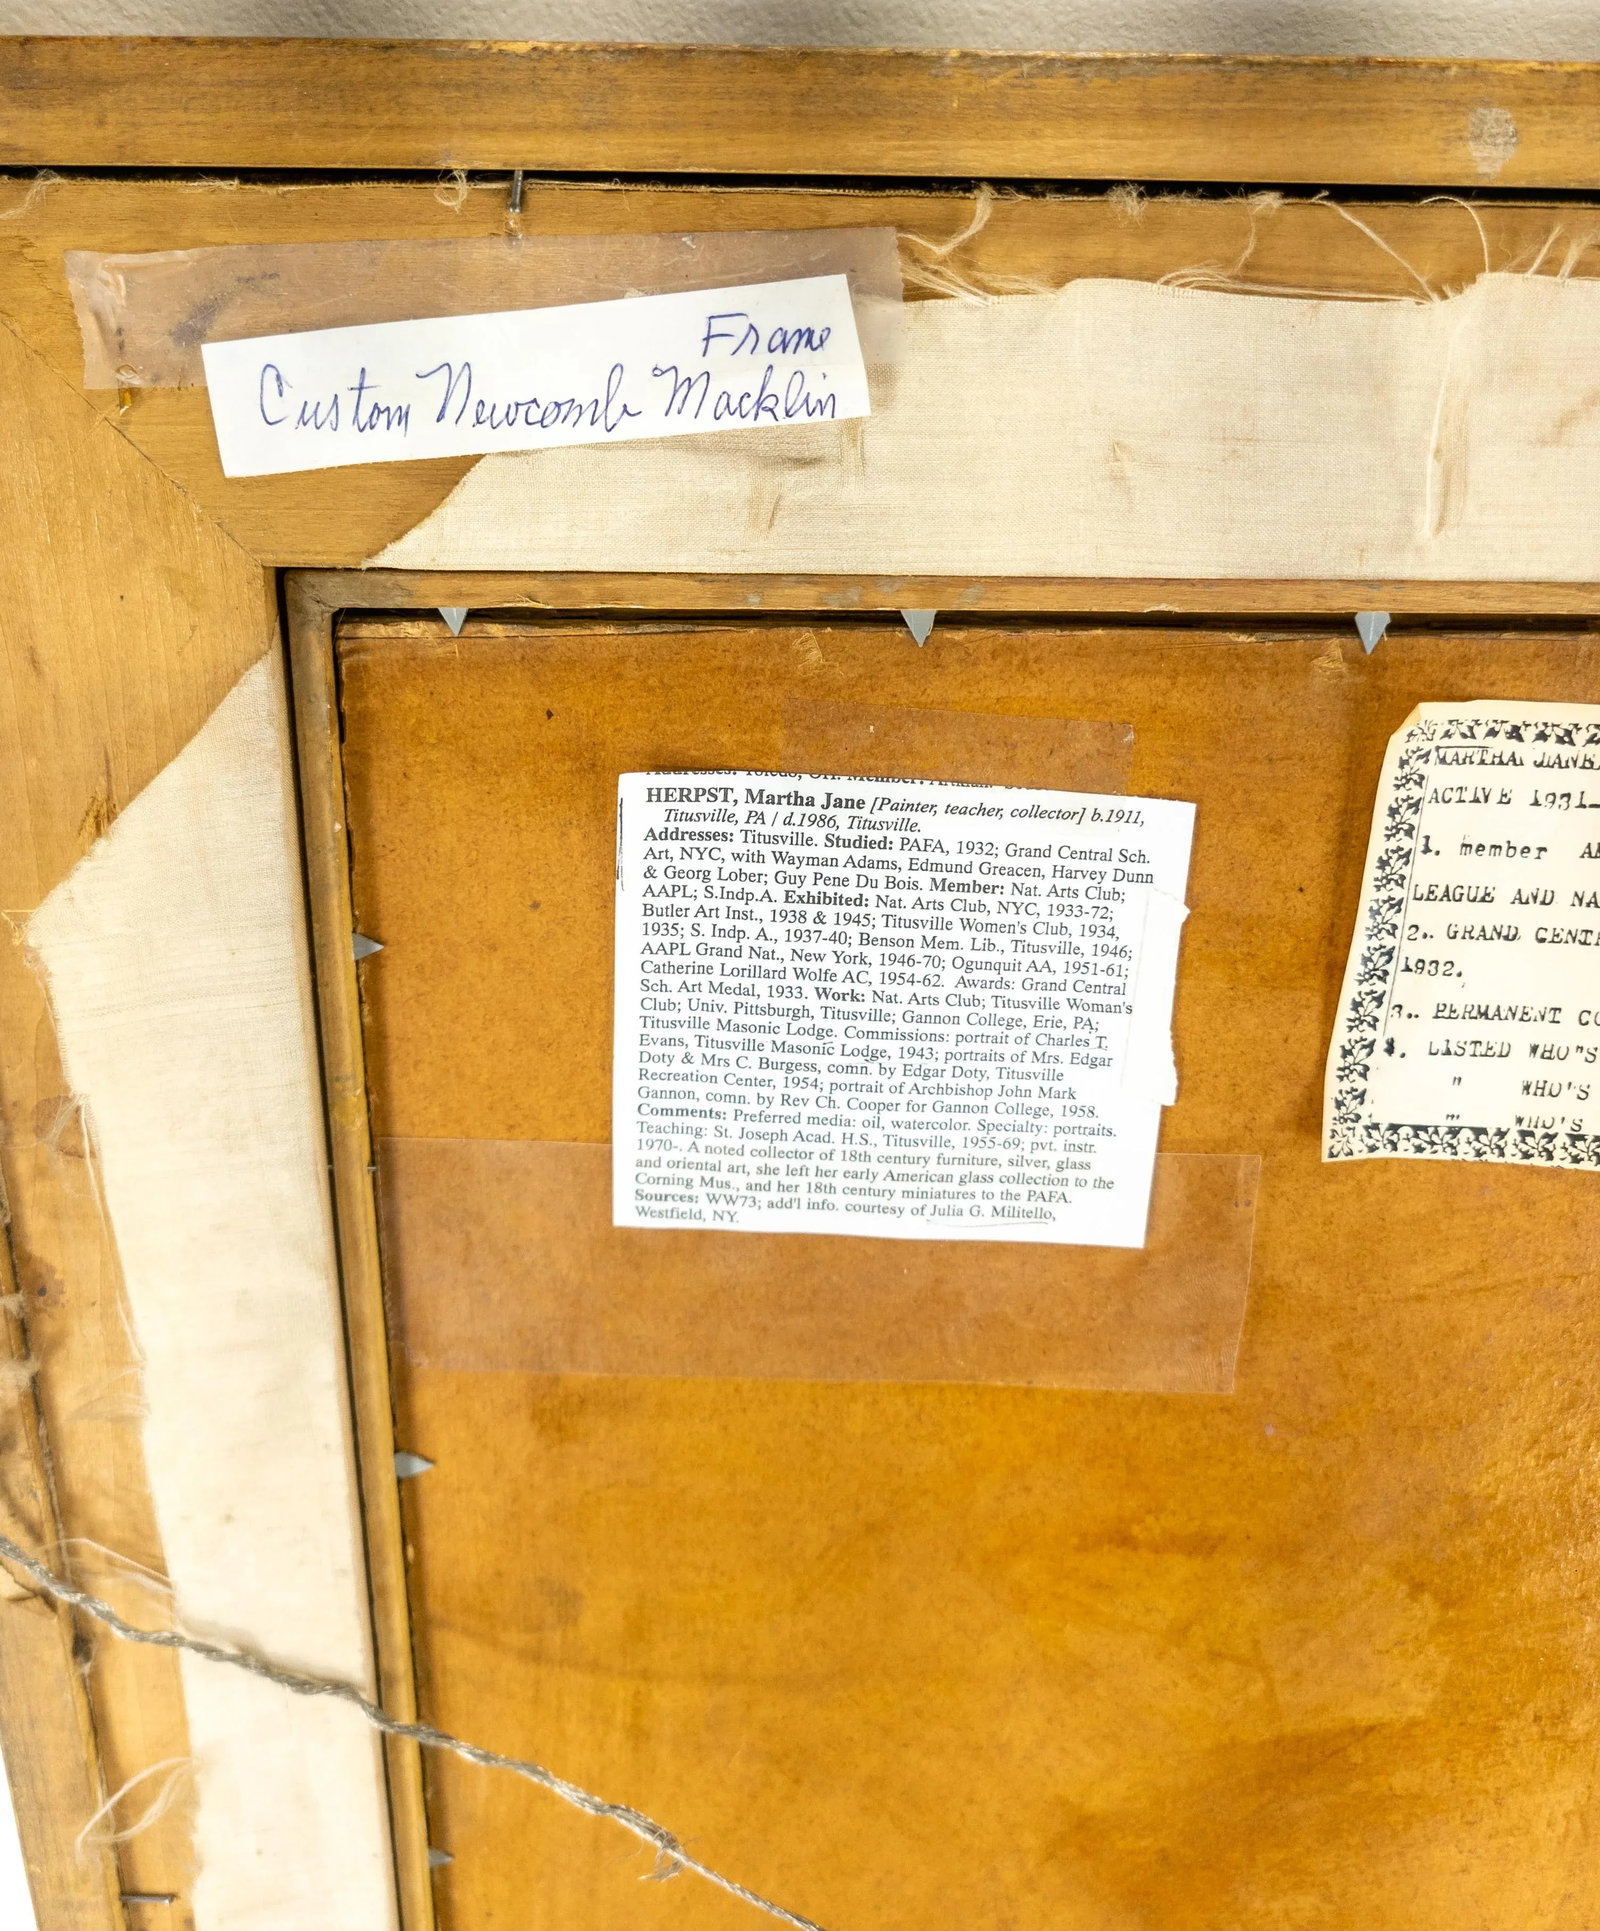 Frame
Custom Newcomb Macklin
HERPST, Martha Jane [Painter, teacher, collector] b.1911,
Titusville, PA / d.1986, Titusville.
Addresses: Titusville. Studied: PAFA, 1932; Grand Central Sch.
Art, NYC, with Wayman Adams, Edmund Greacen, Harvey Dunn
& Georg Lober; Guy Pene Du Bois. Member: Nat. Arts Club;
AAPL; S.Indp.A. Exhibited: Nat. Arts Club, NYC, 1933-72;
Butler Art Inst., 1938 & 1945; Titusville Women's Club, 1934,
1935; S. Indp. A., 1937-40; Benson Mem. Lib., Titusville, 1946;
AAPL Grand Nat., New York, 1946-70; Ogunquit AA, 1951-61;
Catherine Lorillard Wolfe AC, 1954-62. Awards: Grand Central
Sch. Art Medal, 1933. Work: Nat. Arts Club; Titusville Woman's
Club; Univ. Pittsburgh, Titusville; Gannon College, Erie, PA;
Titusville Masonic Lodge. Commissions: portrait of Charles T.
Evans, Titusville Masonic Lodge, 1943; portraits of Mrs. Edgar
Doty & Mrs C. Burgess, comn. by Edgar Doty, Titusville
Recreation Center, 1954; portrait of Archbishop John Mark
Gannon, comn. by Rev Ch. Cooper for Gannon College, 1958.
Comments: Preferred media: oil, watercolor. Specialty: portraits.
Teaching: St. Joseph Acad. H.S., Titusville, 1955-69; pvt. instr.
1970-. A noted collector of 18th century furniture, silver, glass
and oriental art, she left her early American glass collection to the
Corning Mus., and her 18th century miniatures to the PAFA.
Sources: WW73; add'l info. courtesy of Julia G. Militello,
Westfield, NY.
MARTHA JANE
ACTIVE 1931-
1. member
LEAGUE AND NA
2. GRAND CENT
1932.
3. PERMANENT CO
4. LISTED WHO"S
" WHO'S
" WHO'S